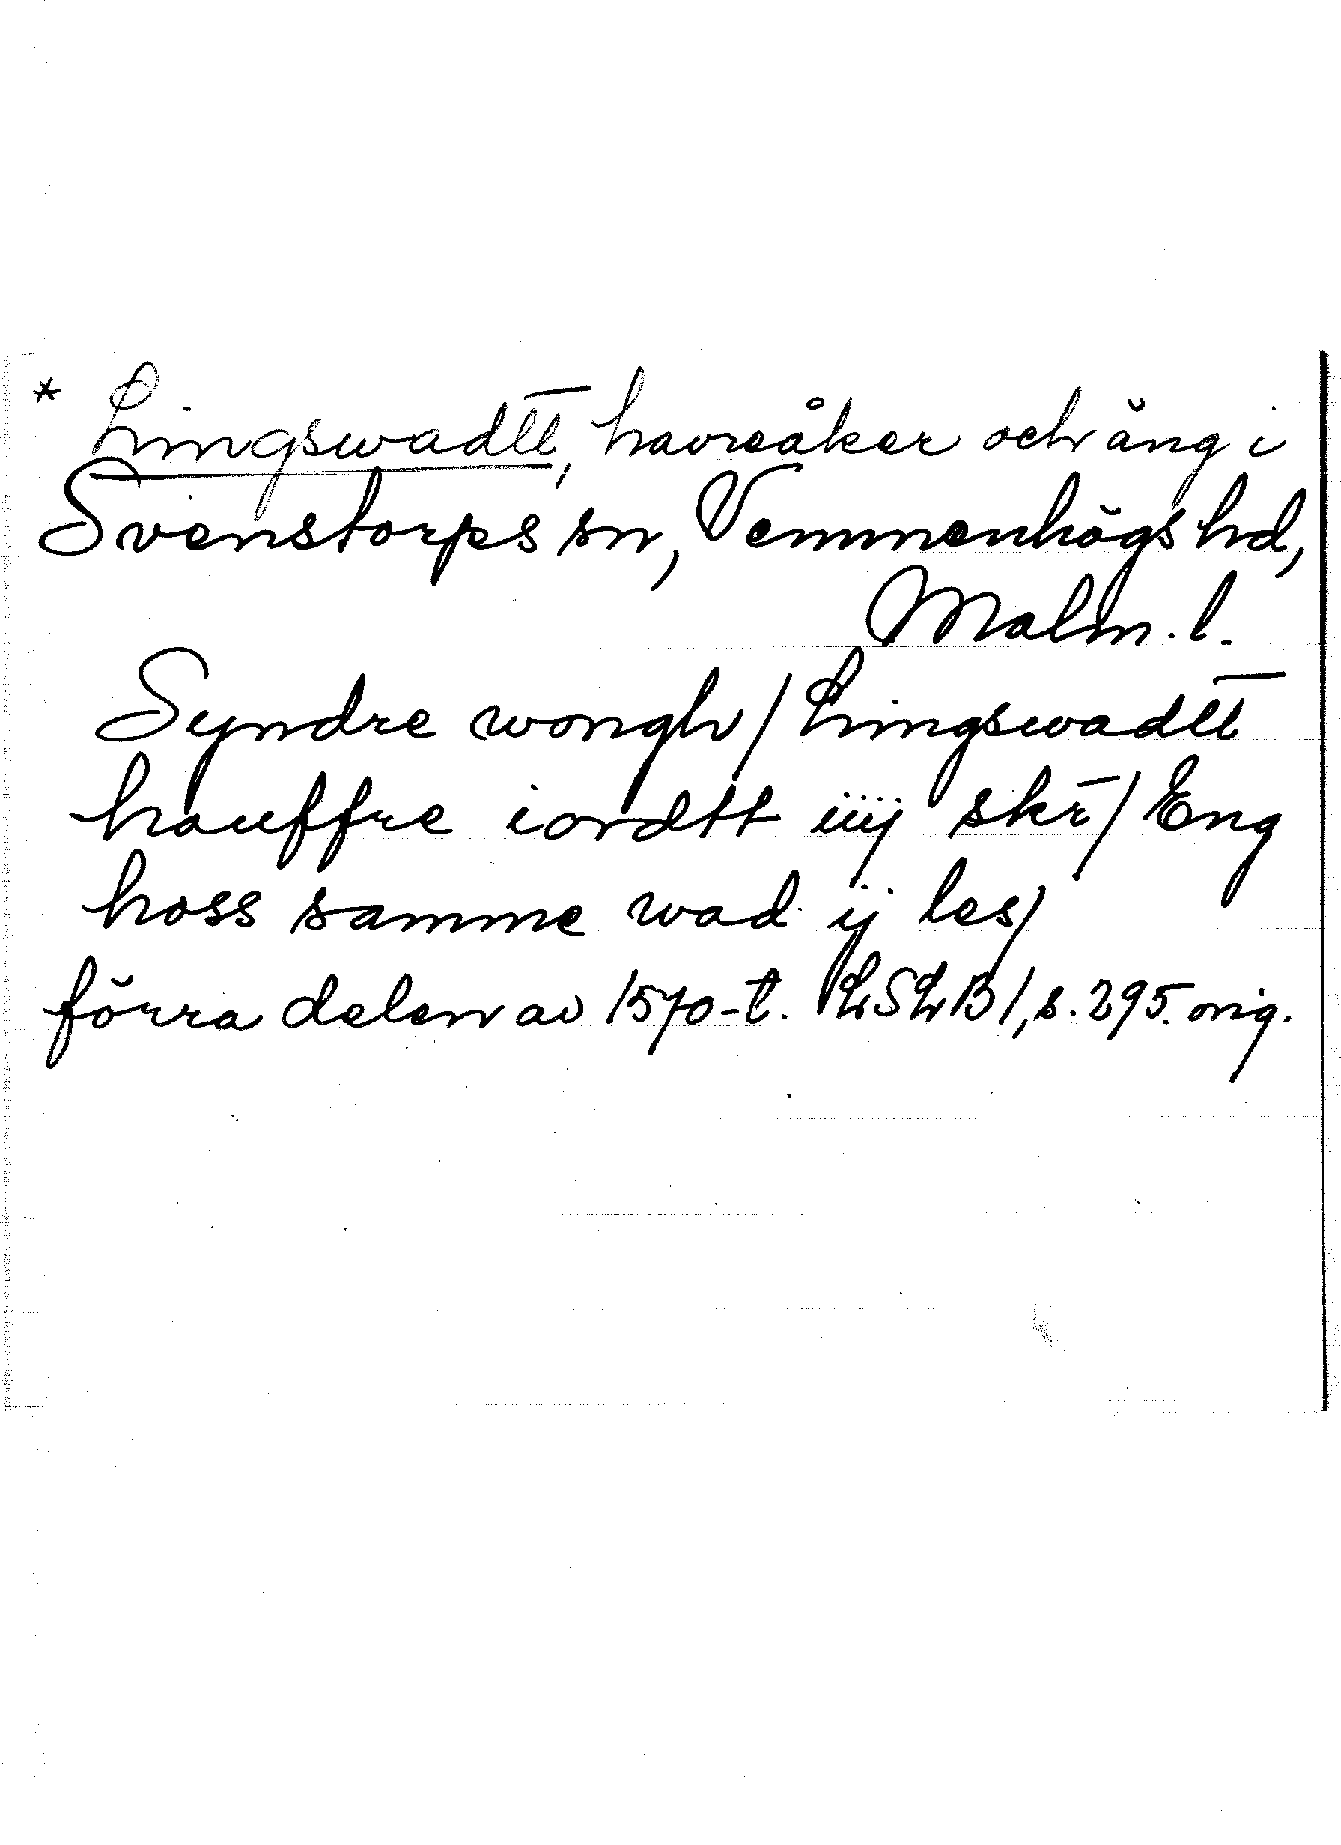 * Lingswadtt, havreåker och äng i
Svenstorps sn, Vemmenhögs hd,
Malm. l.
Syndre wongh / Lingswadtt
hauffre iordtt iiij skr̄ / Eng
hoss samme wad ij les /
förra delen av 1570-t. LSLB 1, s. 295. orig.